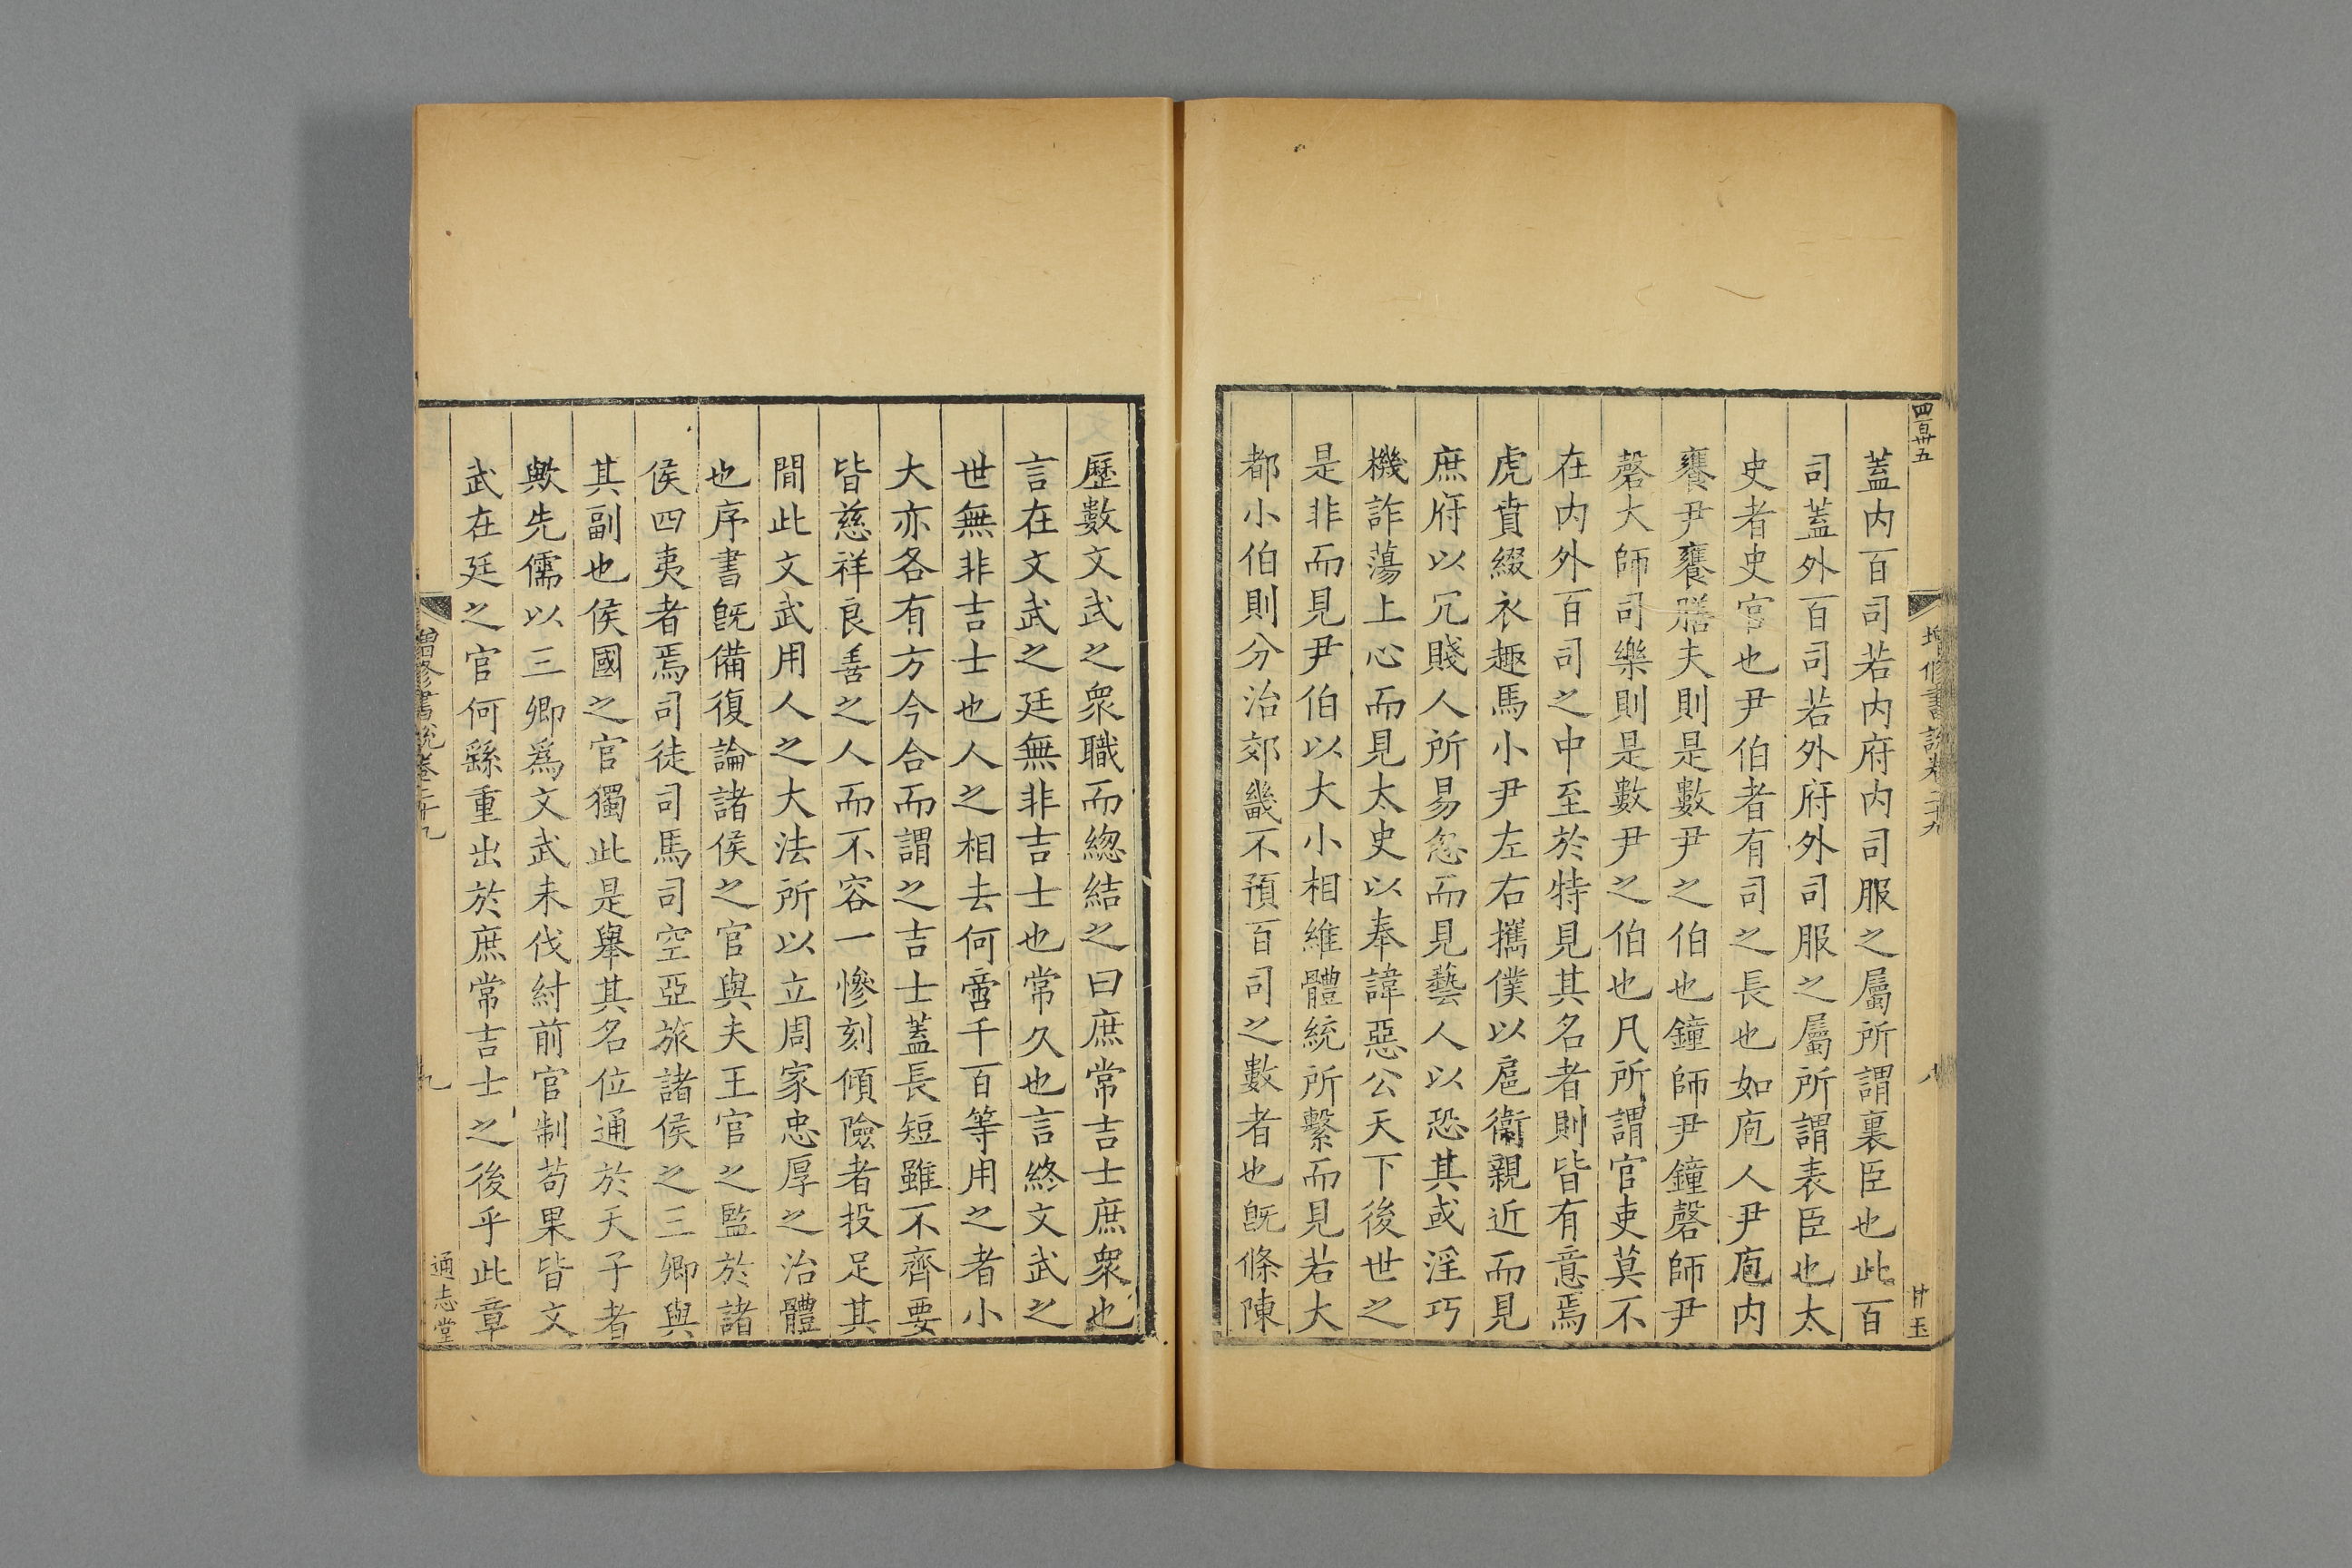 四百卅五
增修書說卷二十九
八
甘玉
蓋内百司若内府内司服之屬所謂裏臣也此百
司蓋外百司若外府外司服之屬所謂表臣也太
史者史官也尹伯者有司之長也如庖人尹庖内
饔尹饔膳夫則是數尹之伯也鐘師尹鐘磬師尹
磬大師司樂則是數尹之伯也凡所謂官吏莫不
在内外百司之中至於特見其名者則皆有意焉
虎賁綴衣趣馬小尹左右攜僕以扈衛親近而見
庶府以冗賤人所易忽而見藝人以恐其或淫巧
機詐蕩上心而見太史以奉諱惡公天下後世之
是非而見尹伯以大小相維體統所繫而見若大
都小伯則分治郊畿不預百司之數者也旣條陳
歷數文武之衆職而緫結之曰庶常吉士庶衆也
言在文武之廷無非吉士也常久也言終文武之
世無非吉士也人之相去何啻千百等用之者小
大亦各有方今合而謂之吉士蓋長短雖不齊要
皆慈祥良善之人而不容一慘刻傾險者投足其
間此文武用人之大法所以立周家忠厚之治體
也序書旣備復論諸侯之官與夫王官之監於諸
侯四夷者焉司徒司馬司空亞旅諸侯之三卿與
其副也侯國之官獨此是舉其名位通於天子者
歟先儒以三卿爲文武未伐紂前官制苟果皆文
武在廷之官何繇重出於庶常吉士之後乎此章
增修書說卷二十九
九
通志堂